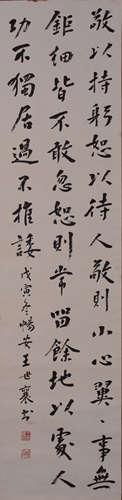 敬以持躬恕以待人敬則小心翼〻事無
鉅細皆不敢忽恕則常留餘地以處人
功不獨居過不推諉 戊寅冬暢安王世襄書